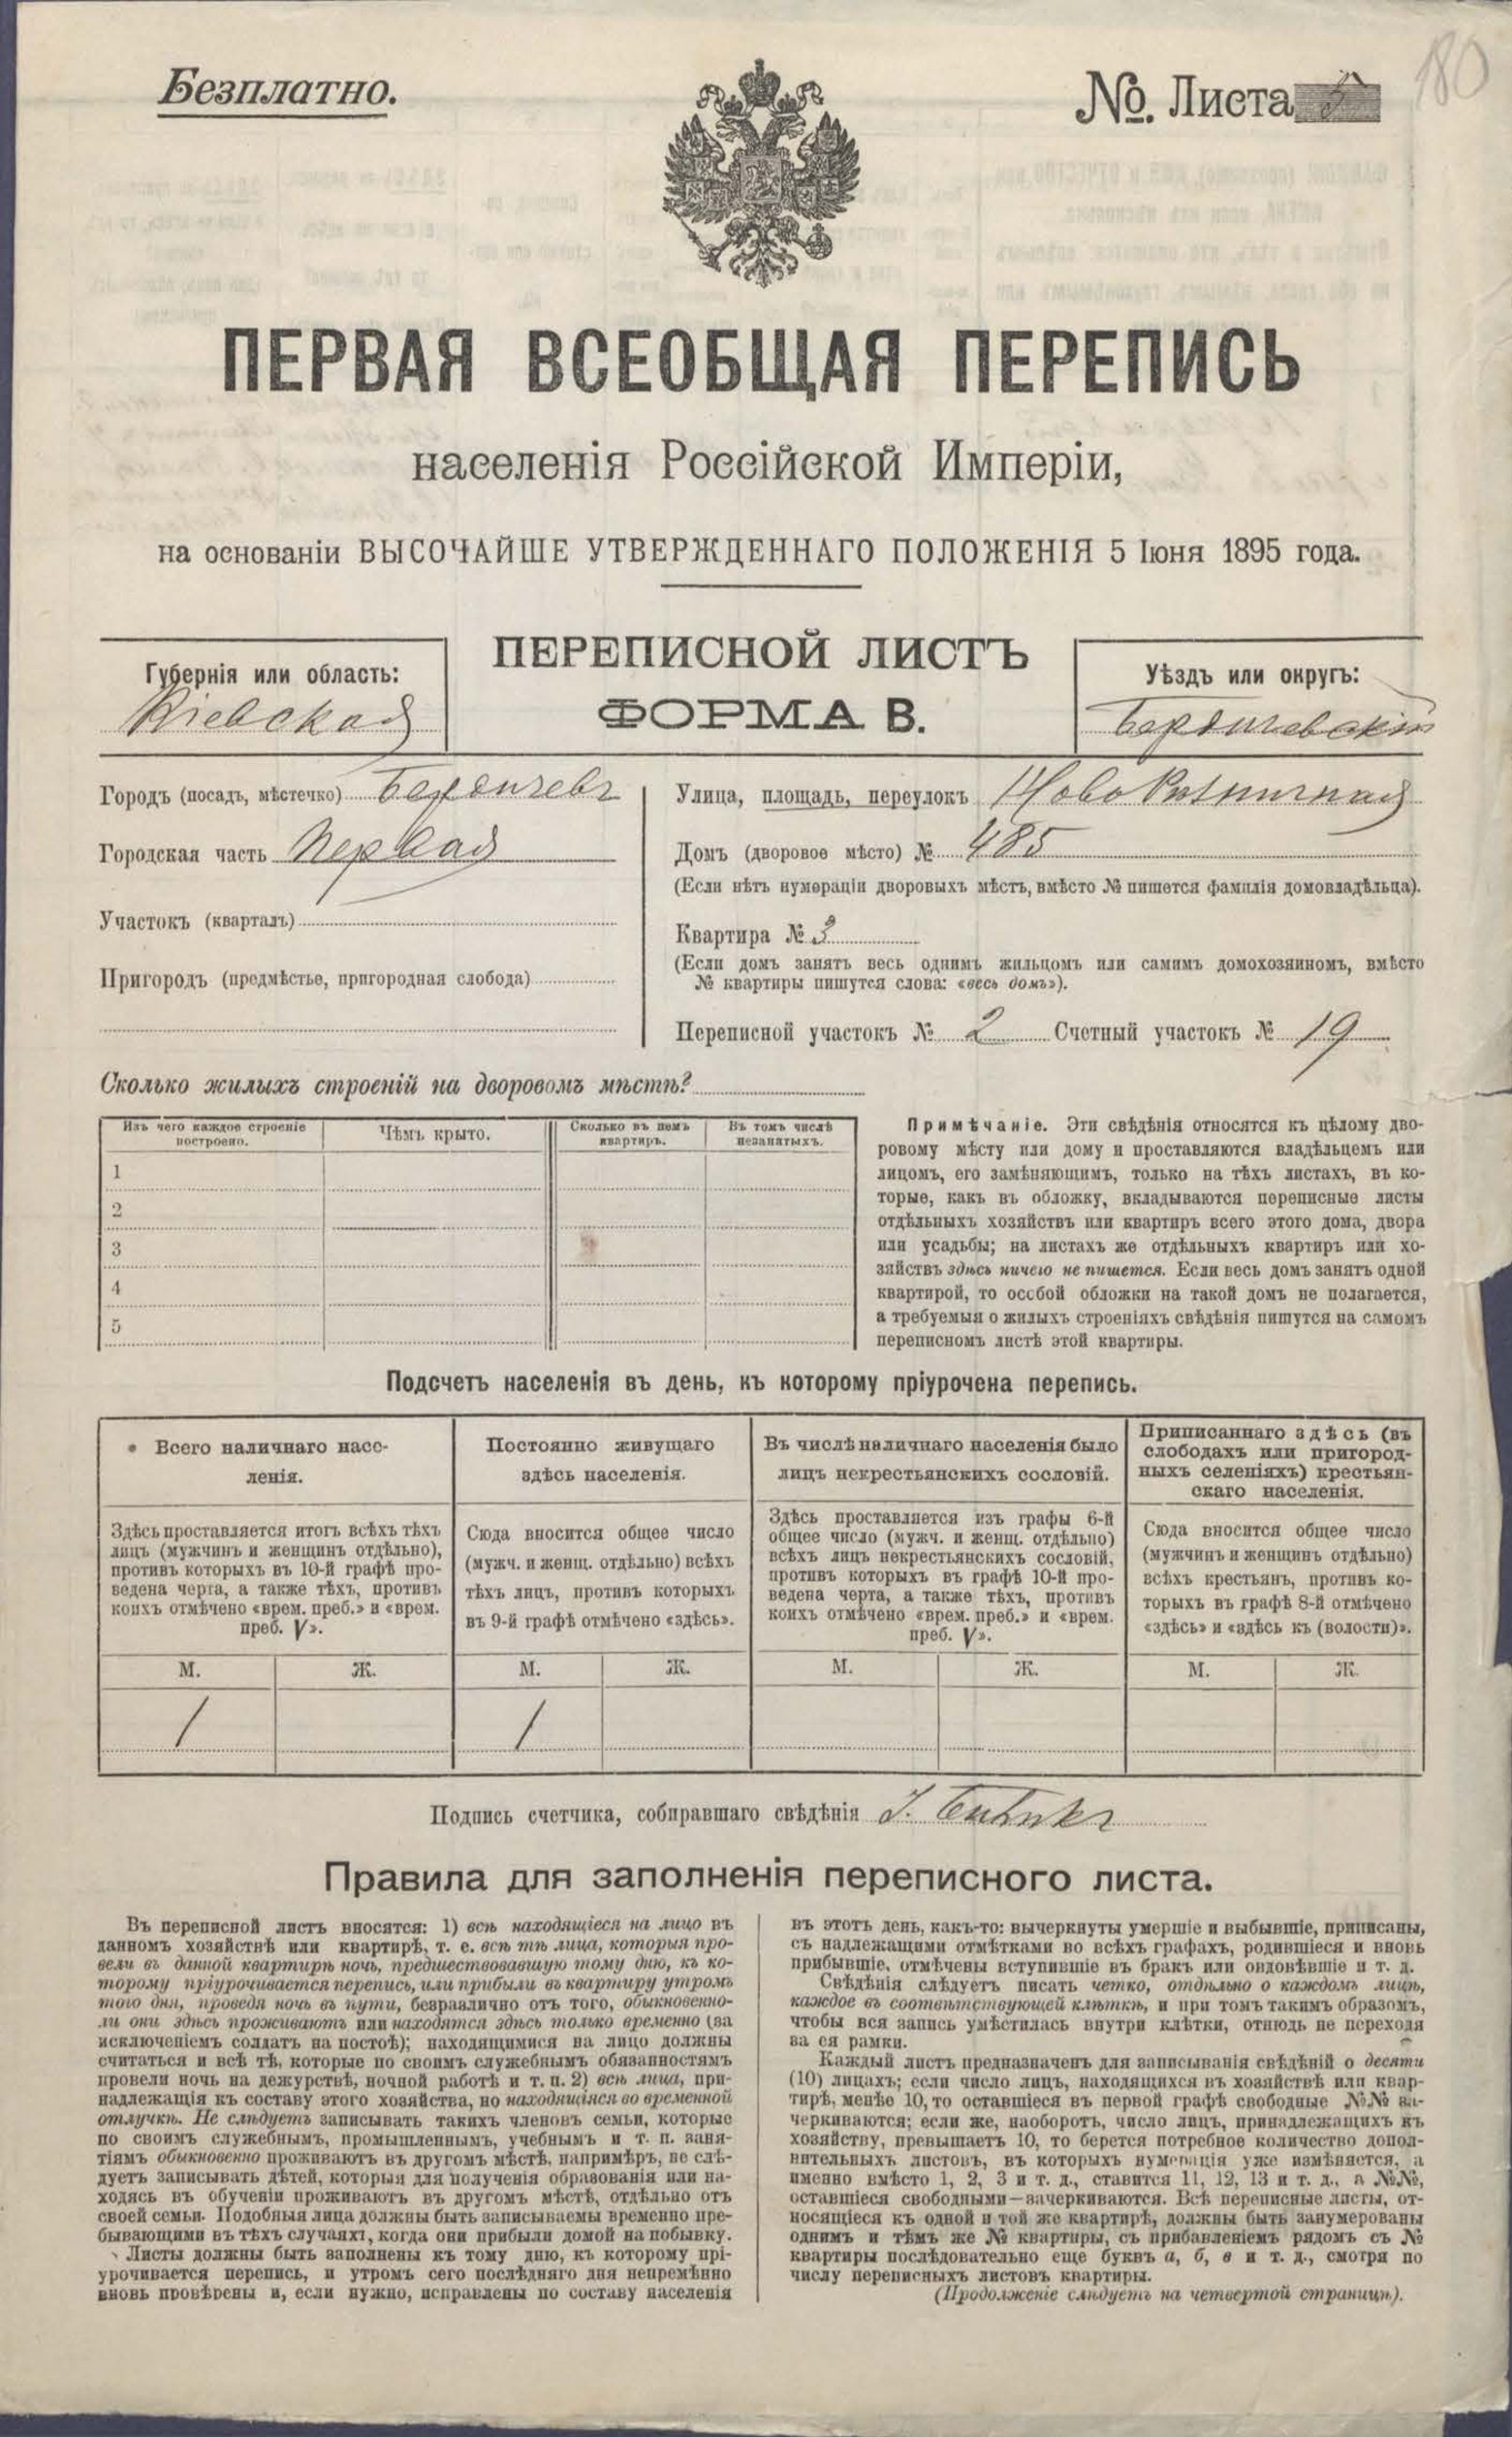 Безплатно.
№. Листа
180
ПЕРВАЯ ВСЕОБЩАЯ ПЕРЕПИСЬ
населенія Россійской Имперіи,
на основаніи ВЫСОЧАЙШЕ УТВЕРЖДЕННАГО ПОЛОЖЕНІЯ 5 Іюня 1895 года.
ПЕРЕПИСНОЙ ЛИСТЪ
ФОРМА В.
Губернія или область:
Кіевская
Уѣздъ или округъ:
Бердичевскій
Городъ (посадъ, мѣстечко) Бердичевъ
Городская часть Первая
Участокъ (кварталъ)
Пригородъ (предмѣстье, пригородная слобода)
Улица, площадь, переулокъ Ново Ризничная
Домъ (дворовое мѣсто) № 485
(Если нѣтъ нумераціи дворовыхъ мѣстъ, вмѣсто № пишется фамилія домовладѣльца).
Квартира № 3
(Если домъ занятъ весь однимъ жильцомъ или самимъ домохозяиномъ, вмѣсто
№ квартиры пишутся слова: «весь домъ»).
Переписной участокъ № 2 Счетный участокъ № 19
Сколько жилыхъ строеній на дворовомъ мѣстѣ?
Изъ чего каждое строеніе
построено.
Чѣмъ крыто.
Сколько въ немъ
квартиръ.
Въ томъ числѣ
незанятыхъ.
1
2
3
4
5
Примѣчаніе. Эти свѣдѣнія относятся къ цѣлому дво-
ровому мѣсту или дому и проставляются владѣльцемъ или
лицомъ, его замѣняющимъ, только на тѣхъ листахъ, въ ко-
торые, какъ въ обложку, вкладываются переписные листы
отдѣльныхъ хозяйствъ или квартиръ всего этого дома, двора
или усадьбы; на листахъ же отдѣльныхъ квартиръ или хо-
зяйствъ здѣсь ничего не пишется. Если весь домъ занятъ одной
квартирой, то особой обложки на такой домъ не полагается,
а требуемыя о жилыхъ строеніяхъ свѣдѣнія пишутся на самомъ
переписномъ листѣ этой квартиры.
Подсчетъ населенія въ день, къ которому пріурочена перепись.
Всего наличнаго насе-
ленія.
Здѣсь проставляется итогъ всѣхъ тѣхъ
лицъ (мужчинъ и женщинъ отдѣльно),
противъ которыхъ въ 10-й графѣ про-
ведена черта, а также тѣхъ, противъ
коихъ отмѣчено «врем. преб.» и «врем.
преб. V».
Постоянно живущаго
здѣсь населенія.
Сюда вносится общее число
(мужч. и женщ. отдѣльно) всѣхъ
тѣхъ лицъ, противъ которыхъ
въ 9-й графѣ отмѣчено «здѣсь».
Въ числѣ наличнаго населенія было
лицъ некрестьянскихъ сословій.
Здѣсь проставляется изъ графы 6-й
общее число (мужч. и женщ. отдѣльно)
всѣхъ лицъ некрестьянскихъ сословій,
противъ которыхъ въ графѣ 10-й про-
ведена черта, а также тѣхъ, противъ
коихъ отмѣчено «врем. преб.» и «врем.
преб. V».
Приписаннаго здѣсь (въ
слободахъ или пригород-
ныхъ селеніяхъ) крестьян-
скаго населенія.
Сюда вносится общее число
(мужчинъ и женщинъ отдѣльно)
всѣхъ крестьянъ, противъ ко-
торыхъ въ графѣ 8-й отмѣчено
«здѣсь» и «здѣсь къ (волости)».
М. Ж. М. Ж. М. Ж. М. Ж.
1 1
Подпись счетчика, собиравшаго свѣдѣнія
Правила для заполненія переписного листа.
Въ переписной листъ вносятся: 1) всѣ находящіеся на лицо въ
данномъ хозяйствѣ или квартирѣ, т. е. всѣ тѣ лица, которыя про-
вели въ данной квартирѣ ночь, предшествовавшую тому дню, къ ко-
торому пріурочивается перепись, или прибыли въ квартиру утромъ
того дня, проведя ночь въ пути, безразлично отъ того, обыкновенно-
ли они здѣсь проживаютъ или находятся здѣсь только временно (за
исключеніемъ солдатъ на постоѣ); находящимися на лицо должны
считаться и всѣ тѣ, которые по своимъ служебнымъ обязанностямъ
провели ночь на дежурствѣ, ночной работѣ и т. п. 2) всѣ лица, при-
надлежащія къ составу этого хозяйства, но находящіяся во временной
отлучкѣ. Не слѣдуетъ записывать такихъ членовъ семьи, которые
по своимъ служебнымъ, промышленнымъ, учебнымъ и т. п. заня-
тіямъ обыкновенно проживаютъ въ другомъ мѣстѣ, напримѣръ, не слѣ-
дуетъ записывать дѣтей, которыя для полученія образованія или на-
ходясь въ обученіи проживаютъ въ другомъ мѣстѣ, отдѣльно отъ
своей семьи. Подобныя лица должны быть записываемы временно пре-
бывающими въ тѣхъ случаяхъ, когда они прибыли домой на побывку.
Листы должны быть заполнены къ тому дню, къ которому прі-
урочивается перепись, и утромъ сего послѣдняго дня непремѣнно
вновь провѣрены и, если нужно, исправлены по составу населенія
въ этотъ день, какъ-то: вычеркнуты умершіе и выбывшіе, приписаны,
съ надлежащими отмѣтками во всѣхъ графахъ, родившіеся и вновь
прибывшіе, отмѣчены вступившіе въ бракъ или овдовѣвшіе и т. д.
Свѣдѣнія слѣдуетъ писать четко, отдѣльно о каждомъ лицѣ,
каждое въ соотвѣтствующей клѣткѣ, и при томъ такимъ образомъ,
чтобы вся запись умѣстилась внутри клѣтки, отнюдь не переходя
за ея рамки.
Каждый листъ предназначенъ для записыванія свѣдѣній о десяти
(10) лицахъ; если число лицъ, находящихся въ хозяйствѣ или квар-
тирѣ, менѣе 10, то оставшіеся въ первой графѣ свободные №№ за-
черкиваются; если же, наоборотъ, число лицъ, принадлежащихъ къ
хозяйству, превышаетъ 10, то берется потребное количество допол-
нительныхъ листовъ, въ которыхъ нумерація уже измѣняется, а
именно вмѣсто 1, 2, 3 и т. д., ставится 11, 12, 13 и т. д., а №№,
оставшіеся свободными—зачеркиваются. Всѣ переписные листы, от-
носящіеся къ одной и той же квартирѣ, должны быть занумерованы
однимъ и тѣмъ же № квартиры, съ прибавленіемъ рядомъ съ №
квартиры послѣдовательно еще буквъ а, б, в и т. д., смотря по
числу переписныхъ листовъ квартиры.
(Продолженіе слѣдуетъ на четвертой страницѣ).